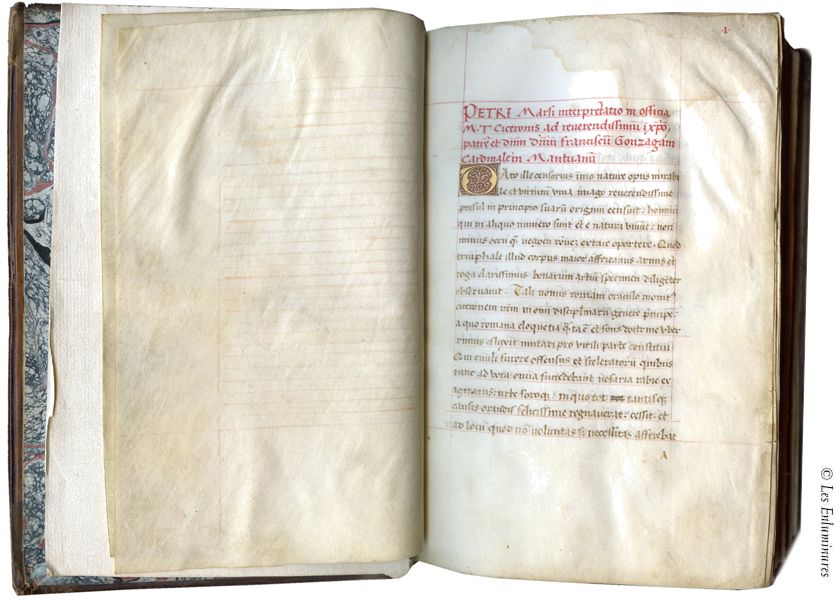 ·I·
PETRI Marsi interpretatio in officia
M·T· Ciceronis ad reverendissimū i xpō,
patrē et dnm dnm franciscū Gonzagam
Cardinalem Mantuanū
Cato ille censorius imo nature opus mirabi
le et virtutū viva imago reverendissime
presul in principio suarū originū censuit: homini
qui in aliquo numero sunt et e natura vivūt: non
minus ocii q̄ negocii rōnez extare oportere· Quod
triūphale illud corpus maior affricanus armis et
toga clarissimus bonarum artiū specimen diligēter
observavit. Tali nomis romani oraculo monit
ciceronem nrm in omi disciplinarū genere prīncipē
a quo romana eloquētia et fons doctrine uber
rimus efluxit imitari pro virili parte constitui
Qui civili furore offensus et sceleratorū quibus
tunc ad vota omia succedebant nefaria rabie ex
agitatus: urbe foroq; in quo tot tantisq;
causis orandis felicissime regnaverat: cessit et
ad locū quod nō voluntas s; necessitas afferebat
A
© Les Enluminures